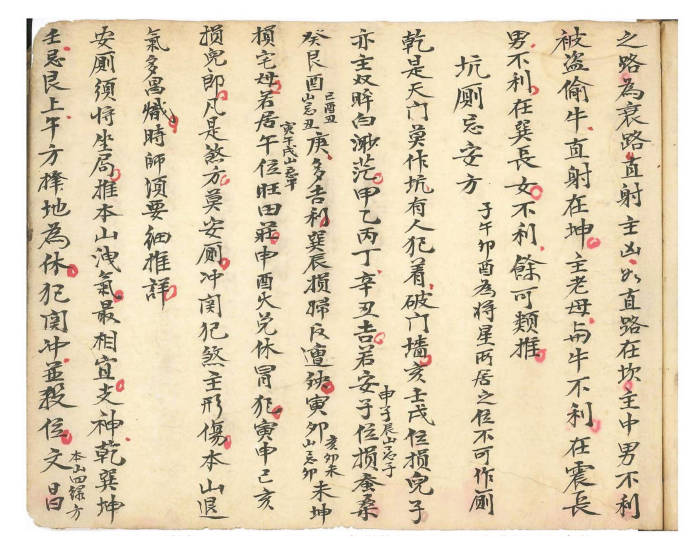 之路為衰路直射主凶如直路在坎主中男不利
被盜偷牛直射在坤主老母與牛不利在震長
男不利在巽長女不利餘可類推
坑厠忌安方 子午卯酉為將星所居之位不可作厠
乾是天门莫作坑有人犯着破门墻亥壬戌位損兒子
亦主双眸白渺茫甲乙丙丁辛丑吉若安子位損蚕桑 申子辰山忌子
癸艮酉 巳酉丑山忌丑 庚多吉利巽辰損婦反遭殃寅夘 亥卯未山忌卯 未坤
損宅母若居午位旺田莊申酉火兑休冒犯寅申己亥 寅午戌山忌午
損兒郎凡是煞方莫安厠冲関犯煞主形傷本山退
氣多昌熾時師須要細推詳
安厠須将坐局推本山洩氣最相宜支神乾巽坤
壬忌艮上午方擇地為休犯関冲並殺位文昌 本山四綠方